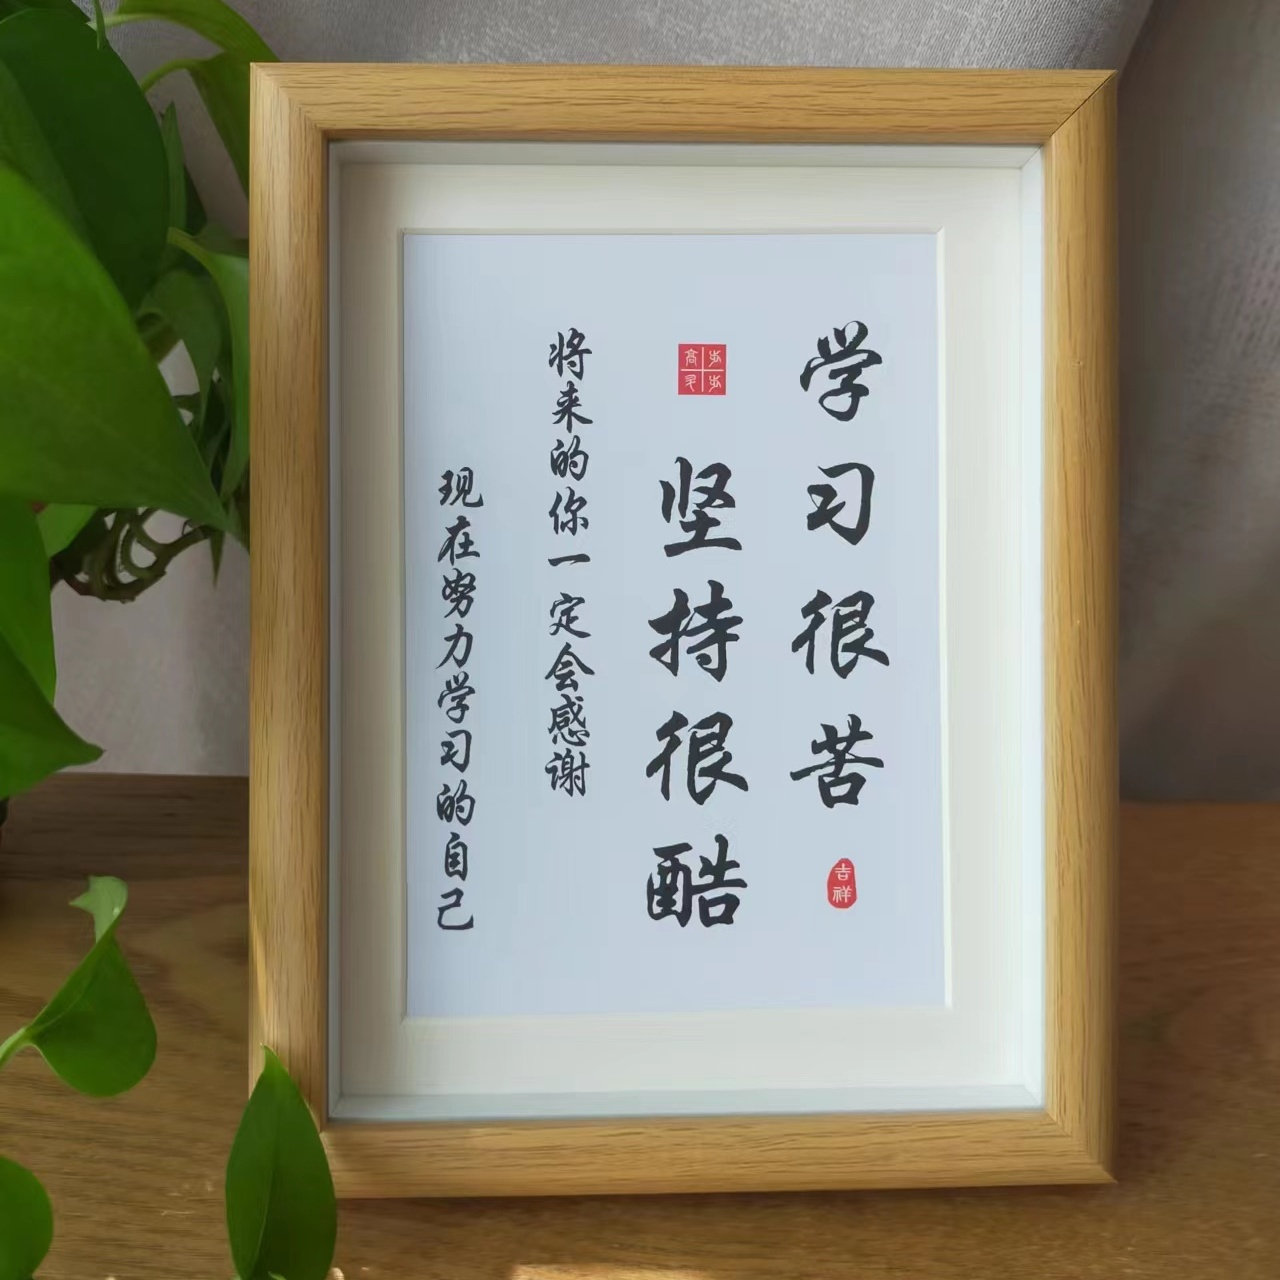 学习很苦
吉祥
坚持很酷
将来的你一定会感谢
现在努力学习的自己